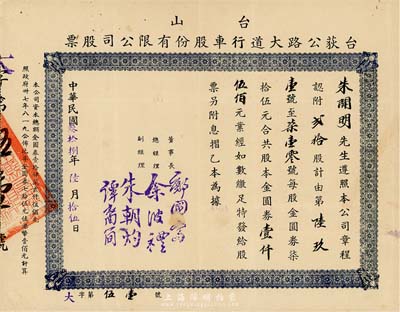 台山
台荻公路大道行車股份有限公司股票
朱開明先生遵照本公司章程
認附貳拾股計由第陸玖
壹號至柒壹零號每股金圓券柒
拾伍元合共股本金圓券壹仟
伍佰元業經如數繳足特發給股
票另附息摺乙本為據
董事長
總經理 余波禮
副經理 朱朝灼
譚裔簡
中華民國叁拾捌年陸月拾伍日
大字第伍壹號